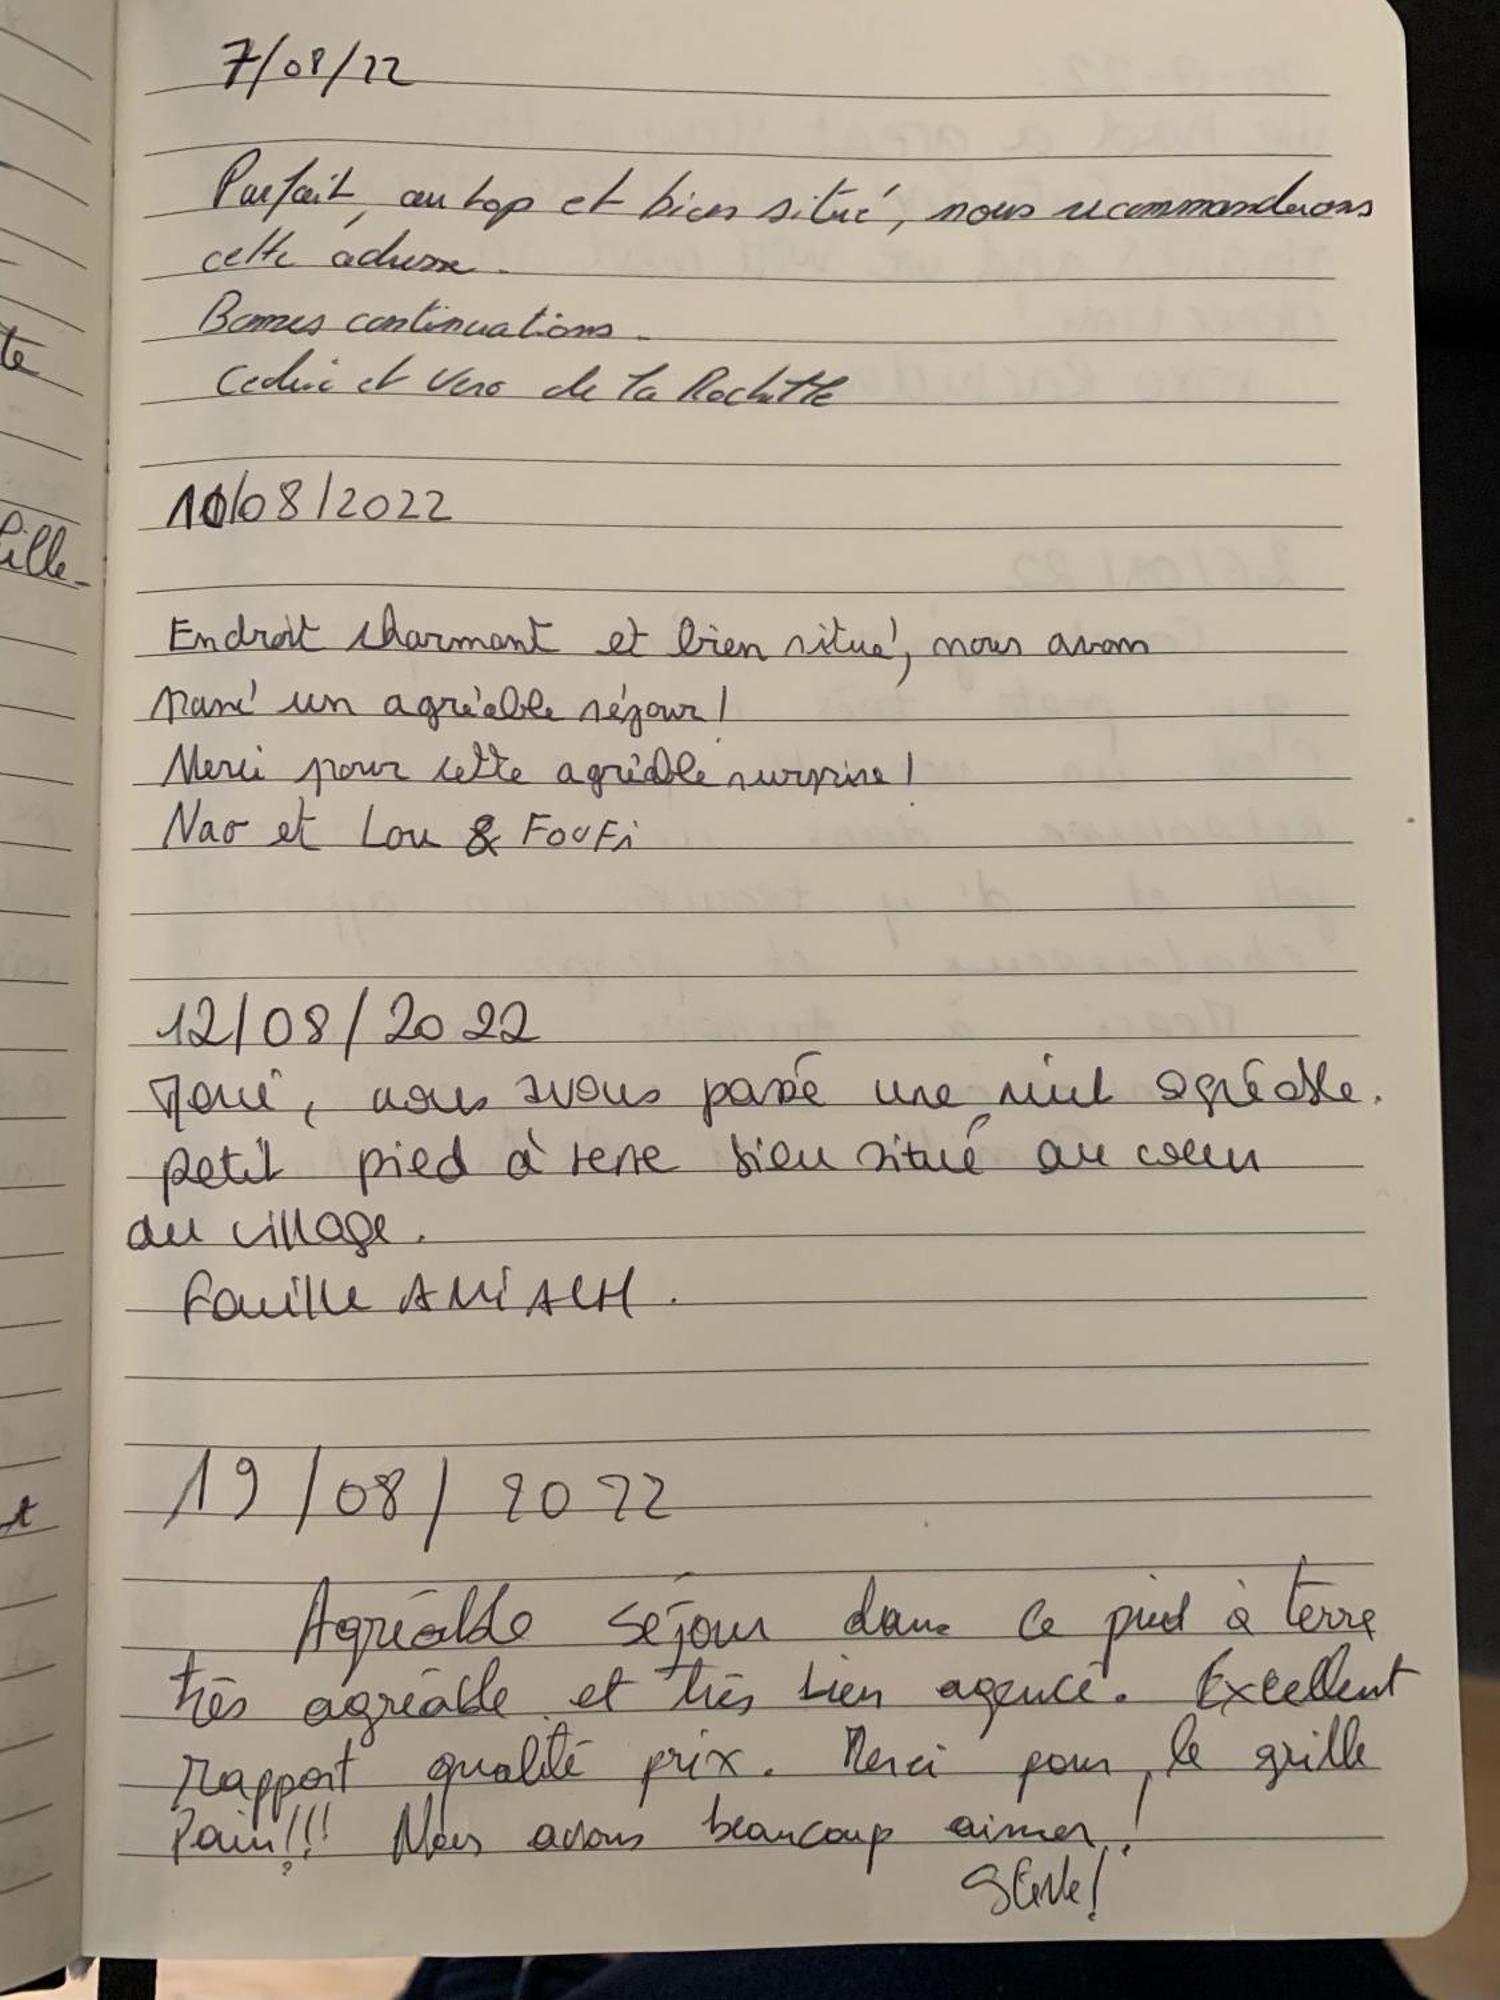 te
fille-
t
7/08/22
Parfait, au top et bien situé, nous recommanderons
cette adresse.
Bonnes continuations.
Cedric et Vero de la Rochette
10/08/2022
Endroit charmant et bien situé, nous avons
passé un agréable séjour !
Merci pour cette agréable surprise !
Nao et Lou & FouFi
12/08/2022
nous avons passé une nuit agréable.
petit pied à terre bien situé au coeur
du village.
Famille
19/08/2022
Agréable séjour dans ce pied à terre
très agréable et très bien agencé. Excellent
rapport qualité prix. Merci pour le grille
Pain!!! Nous avons beaucoup aimer !